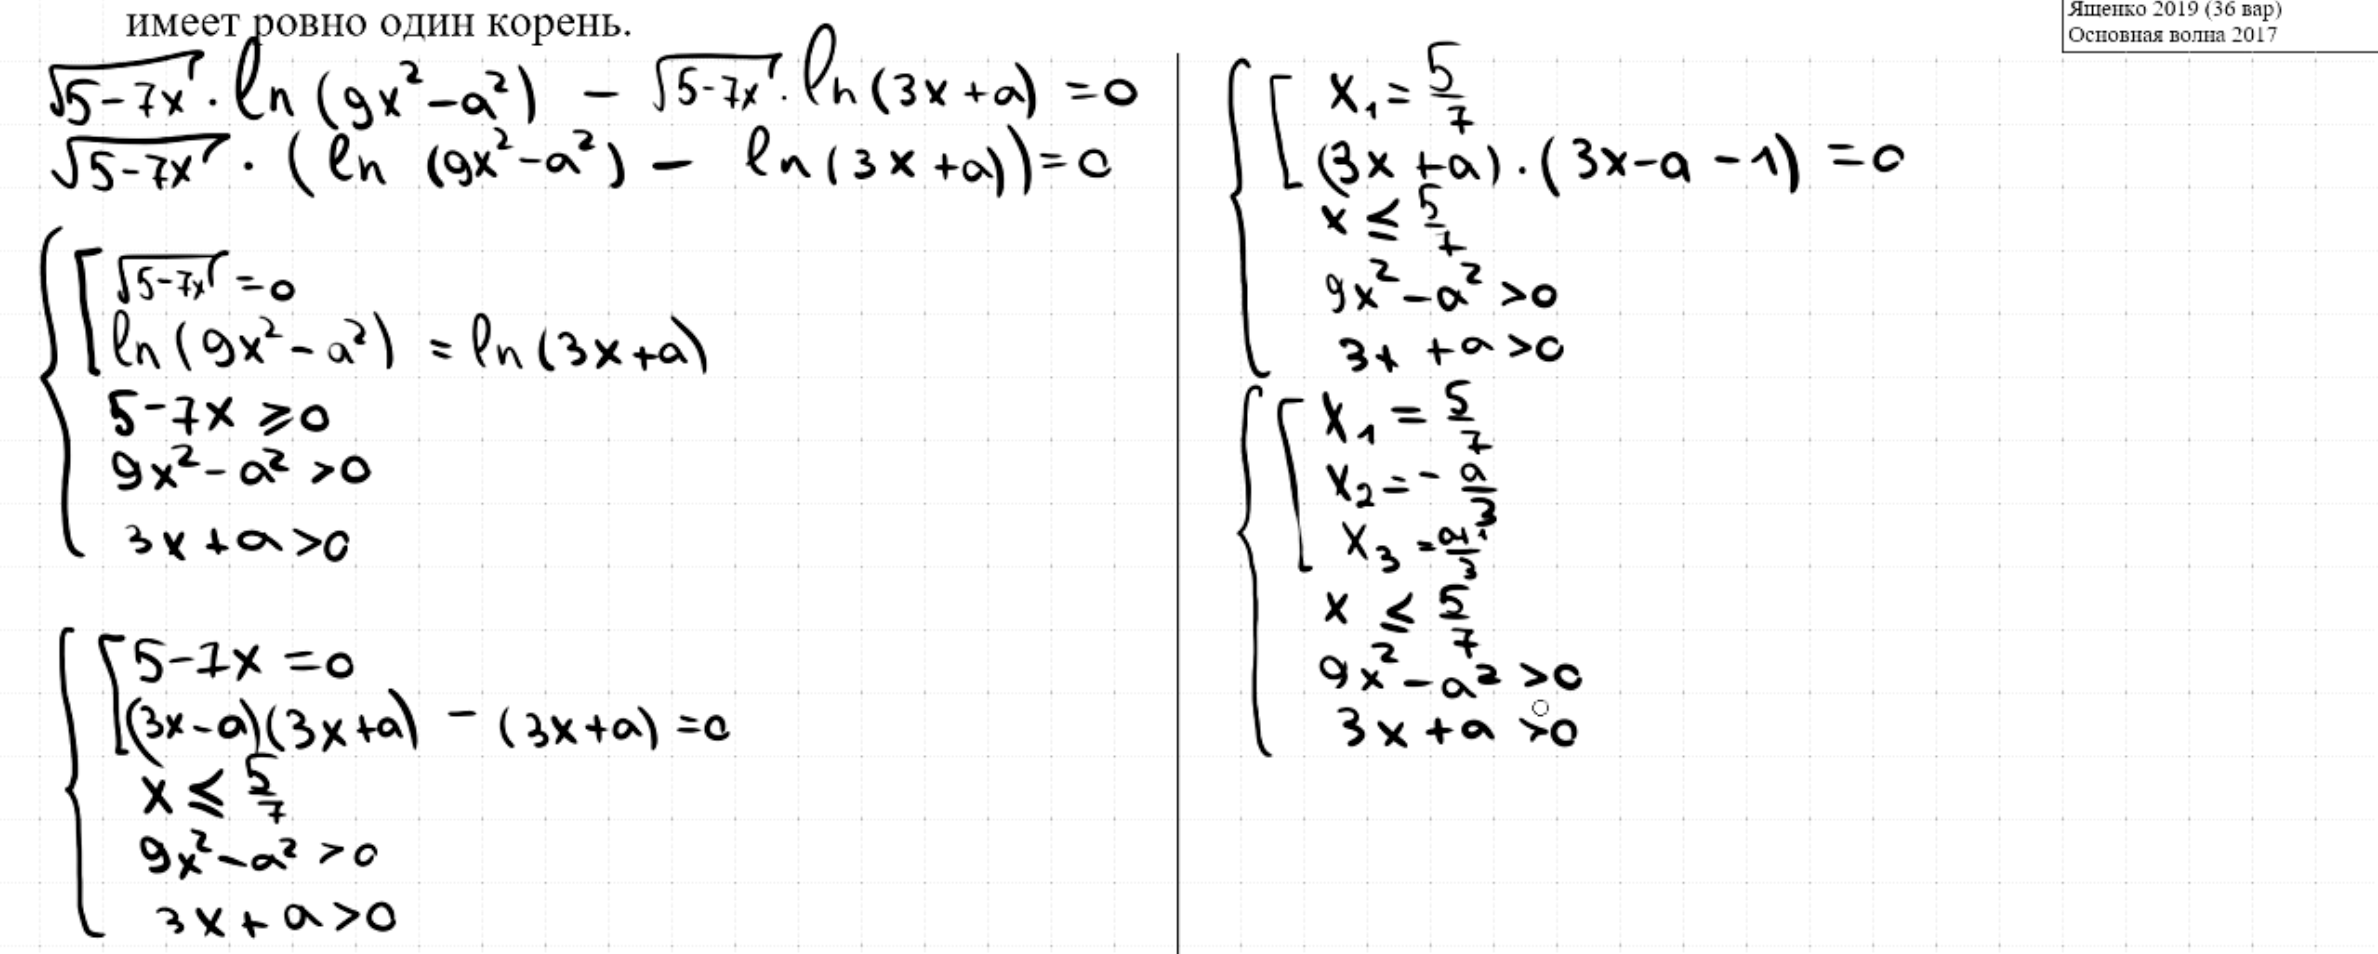 имеет ровно один корень.
Ященко 2019 (36 вар)
Основная волна 2017
√(5-7x) · ln (9x² - a²) - √(5-7x) · ln (3x + a) = 0
√(5-7x) · (ln (9x² - a²) - ln (3x + a)) = 0
√(5-7x) = 0
ln (9x² - a²) = ln (3x + a)
5 - 7x ⩾ 0
9x² - a² > 0
3x + a > 0
5 - 7x = 0
(3x - a)(3x + a) - (3x + a) = 0
x ⩽ 5/7
9x² - a² > 0
3x + a > 0
x₁ = 5/7
(3x + a) · (3x - a - 1) = 0
x ⩽ 5/7
9x² - a² > 0
3x + a > 0
x₁ = 5/7
x₂ = - a/3
x₃ = a+1/3
x ⩽ 5/7
9x² - a² > 0
3x + a > 0